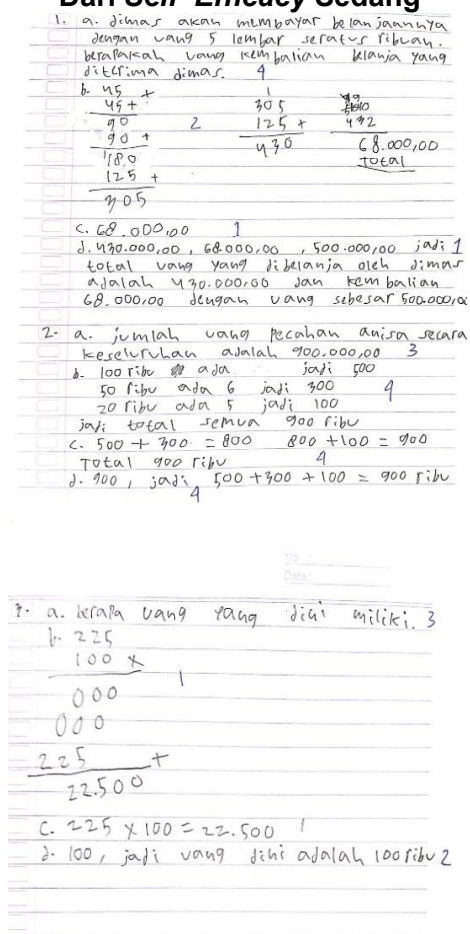 Dari Self Efficacy Sedang
1. a. dimas akan membayar belanjaannya
dengan uang 5 lembar seratus ribuan.
berapakah uang kembalian belanja yang
diterima dimas. 4
b. 45 +
45 +
90
90 +
180
125 +
305
2
1
305
125 +
430
432
68.000,00
total
c. 68.000,00 1
d. 430.000,00, 68.000,00, 500.000,00 jadi 1
total uang yang dibelanja oleh dimas
adalah 430.000,00 dan kembalian
68.000,00 dengan uang sebesar 500.000,00
2- a. jumlah uang pecahan anisa secara
keseluruhan adalah 900.000,00 3
b. 100 ribu ada jadi 500
50 ribu ada 6 jadi 300 4
20 ribu ada 5 jadi 100
jadi total semua 900 ribu
c. 500 + 300 = 800 800 + 100 = 900
Total 900 ribu 4
d. 900, jadi 500 + 300 + 100 = 900 ribu
4
No :
Date :
3. a. berapa uang yang dini miliki. 3
b. 225
100 x
000 1
000
225 +
22.500
c. 225 x 100 = 22.500 1
d. 100, jadi uang dini adalah 100 ribu 2